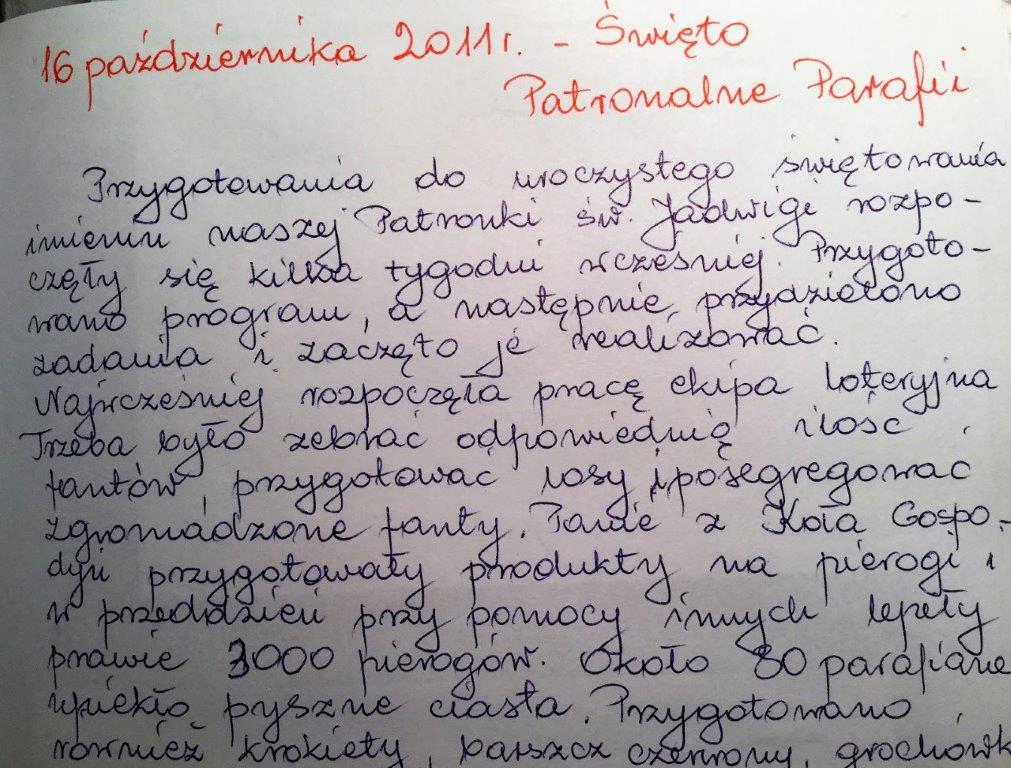 16 października 2011r. - Święto
Patronalne Parafii
Przygotowania do uroczystego świętowania
imienin naszej Patronki św. Jadwigi rozpo-
częły się kilka tygodni wcześniej. Przygoto-
wano program, a następnie przydzielono
zadania i zaczęto je realizować.
Najwcześniej rozpoczęła pracę ekipa loteryjna
Trzeba było zebrać odpowiednią ilość
fantów, przygotować losy i posegregować
zgromadzone fanty. Panie z Koła Gospo-
dyń przygotowały produkty na pierogi i
w przeddzień przy pomocy innych lepiły
prawie 3000 pierogów. Około 80 parafian
upiekło pyszne ciasta. Przygotowano
również krokiety, barszcz czerwony, grochówk